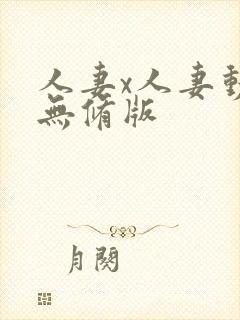 人妻x人妻動
無脩版
月関